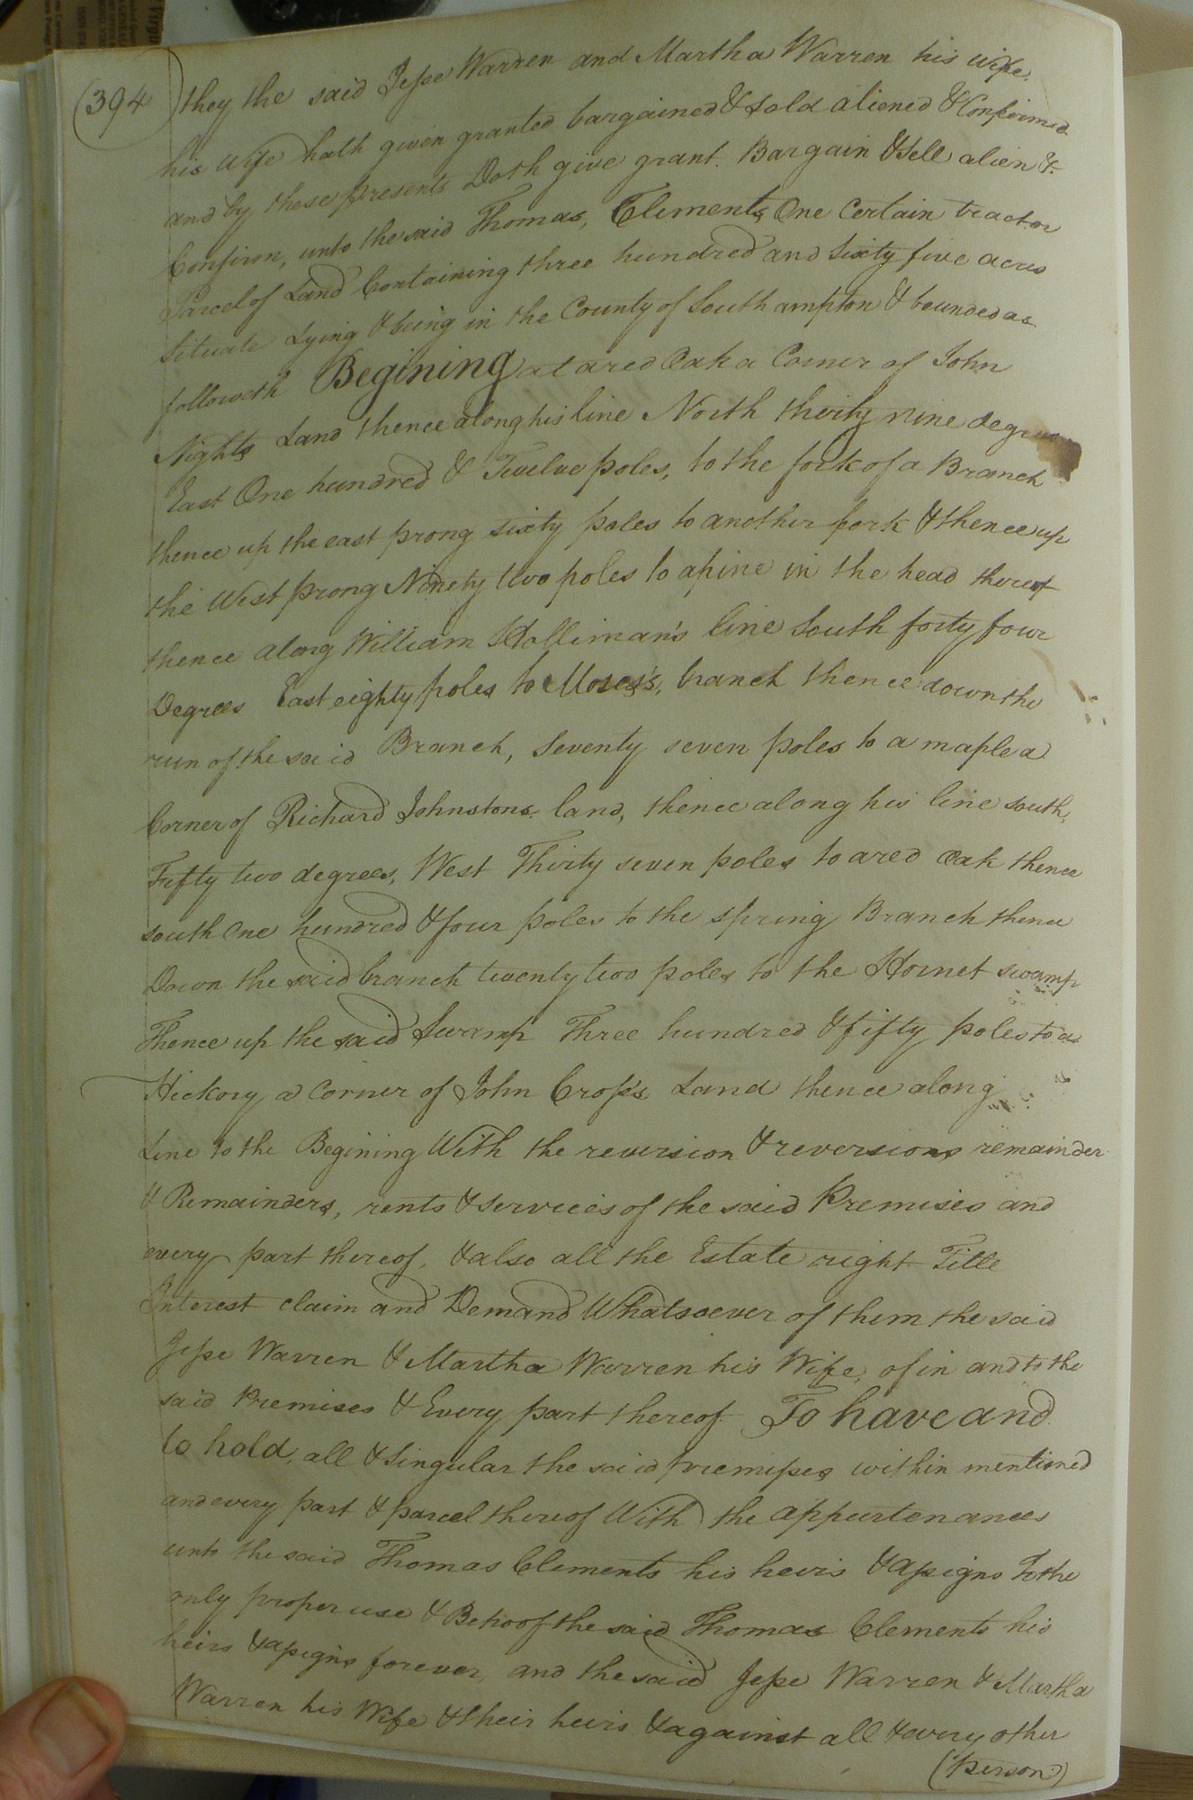 (394)
they the said Jesse Warren and Martha Warren his wife,
his wife hath given granted bargained & sold aliened & Confirmed
and by these presents Doth give grant. Bargain & Sell alien &
Confirm, unto the said Thomas, Clements, One Certain tract or
Parcel of Land Containing three hundred and Sixty five acres
Situate Lying & being in the County of Southampton & bounded as
followeth Begining at a red Oak a Corner of John
Nights Land thence along his line North thirty nine degrees
East One hundred & Twelve poles, to the fork of a Branch
thence up the east prong sixty poles to another fork & thence up
the West prong Ninety two poles to a pine in the head thereof
thence along William Holliman's line South forty four
Degrees East eighty poles to Moses's, branch thence down the
run of the said Branch, Seventy seven poles to a maple a
Corner of Richard Johnstons land, thence along his line south,
Fifty two degrees, West Thirty seven poles to a red oak thence
south One hundred & four poles to the spring Branch thence
Down the said branch twenty two poles to the Hornet swamp
Thence up the said Swamp Three hundred & fifty poles to a
Hickory a Corner of John Cross's Land thence along
Line to the Begining With the reversion & reversions remainder
& Remainders, rents & services of the said Premises and
every part thereof, & also all the Estate right Title
Interest claim and Demand Whatsoever of them the said
Jesse Warren & Martha Warren his Wife, of in and to the
said Premises & Every part thereof To have and
to hold, all & Singular the said premisses within mentioned
and every part & parcel thereof With the appurtenances
unto the said Thomas Clements his heirs & assigns To the
only proper use & Behoof the said Thomas Clements his
heirs & assigns forever, and the said Jesse Warren & Martha
Warren his Wife & their heirs & against all & every other
(person)